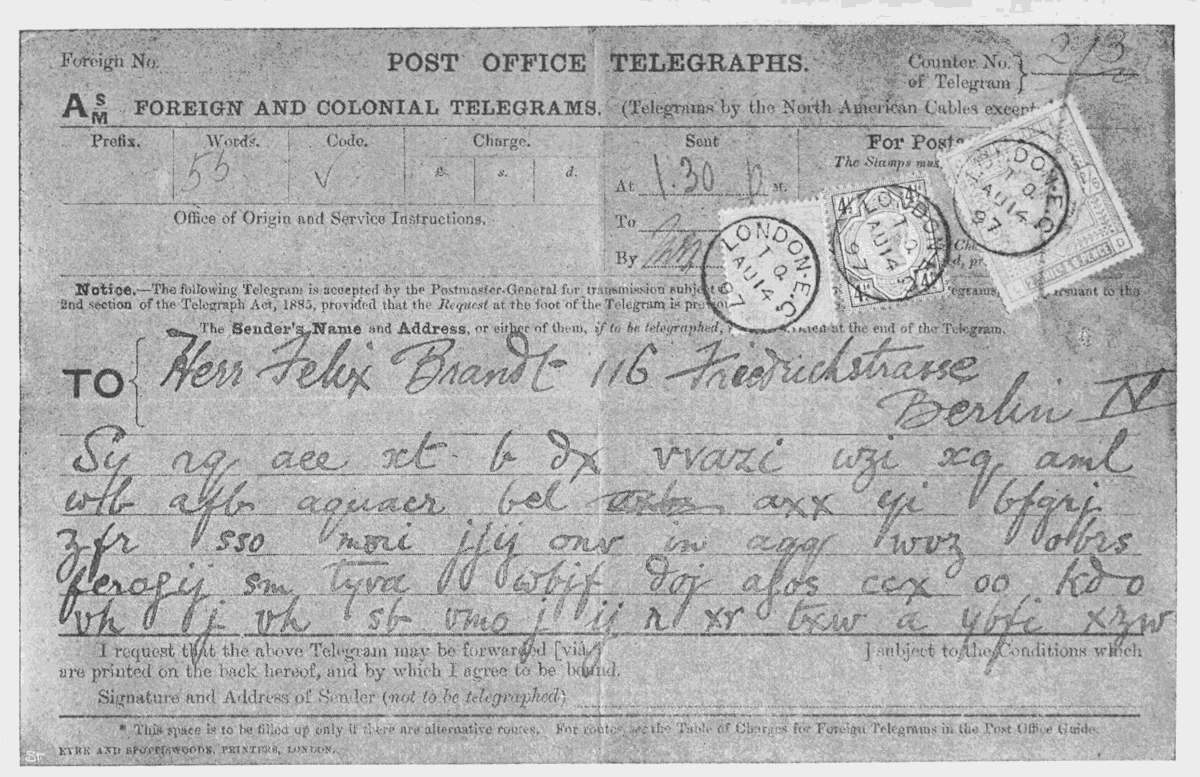 Foreign No.
POST OFFICE TELEGRAPHS.
Counter No. of Telegram } 213
A S M FOREIGN AND COLONIAL TELEGRAMS. (Telegrams by the North American Cables except
Prefix. Words. Code. Charge. Sent For Post
55 √ £. s. d. The Stamps mus
At 1.30 p M.
Office of Origin and Service Instructions. To
By
LONDON.E.C
T O
AU 14
97
LONDON
T O
AU 14
97
LONDON.E.C
T O
AU 14
97
Notice.—The following Telegram is accepted by the Postmaster-General for transmission subject egrams, rsuant to the
2nd section of the Telegraph Act, 1885, provided that the Request at the foot of the Telegram is
The Sender's Name and Address, or either of them, if to be telegraphed, at the end of the Telegram.
TO { Herr Felix Brandt 116 Friedrichstrasse
Berlin N
Sy rq aee xt b dx vvazi wzi xq aml
wlb afb aquaer bel axx yi bfgrj
zfr sso mori jfij onv in agq wvz obrs
feroqij sm tyva wbjf doj afos ccx oo kdo
vh j vh sb vmo j ij n xr txw a ybfi xzw
I request that the above Telegram may be forwarded [viâ ] subject to the Conditions which
are printed on the back hereof, and by which I agree to be bound.
Signature and Address of Sender (not to be telegraphed)
* This space is to be filled up only if there are alternative routes. For routes, see the Table of Charges for Foreign Telegrams in the Post Office Guide.
EYRE AND SPOTTISWOODE, PRINTERS, LONDON.